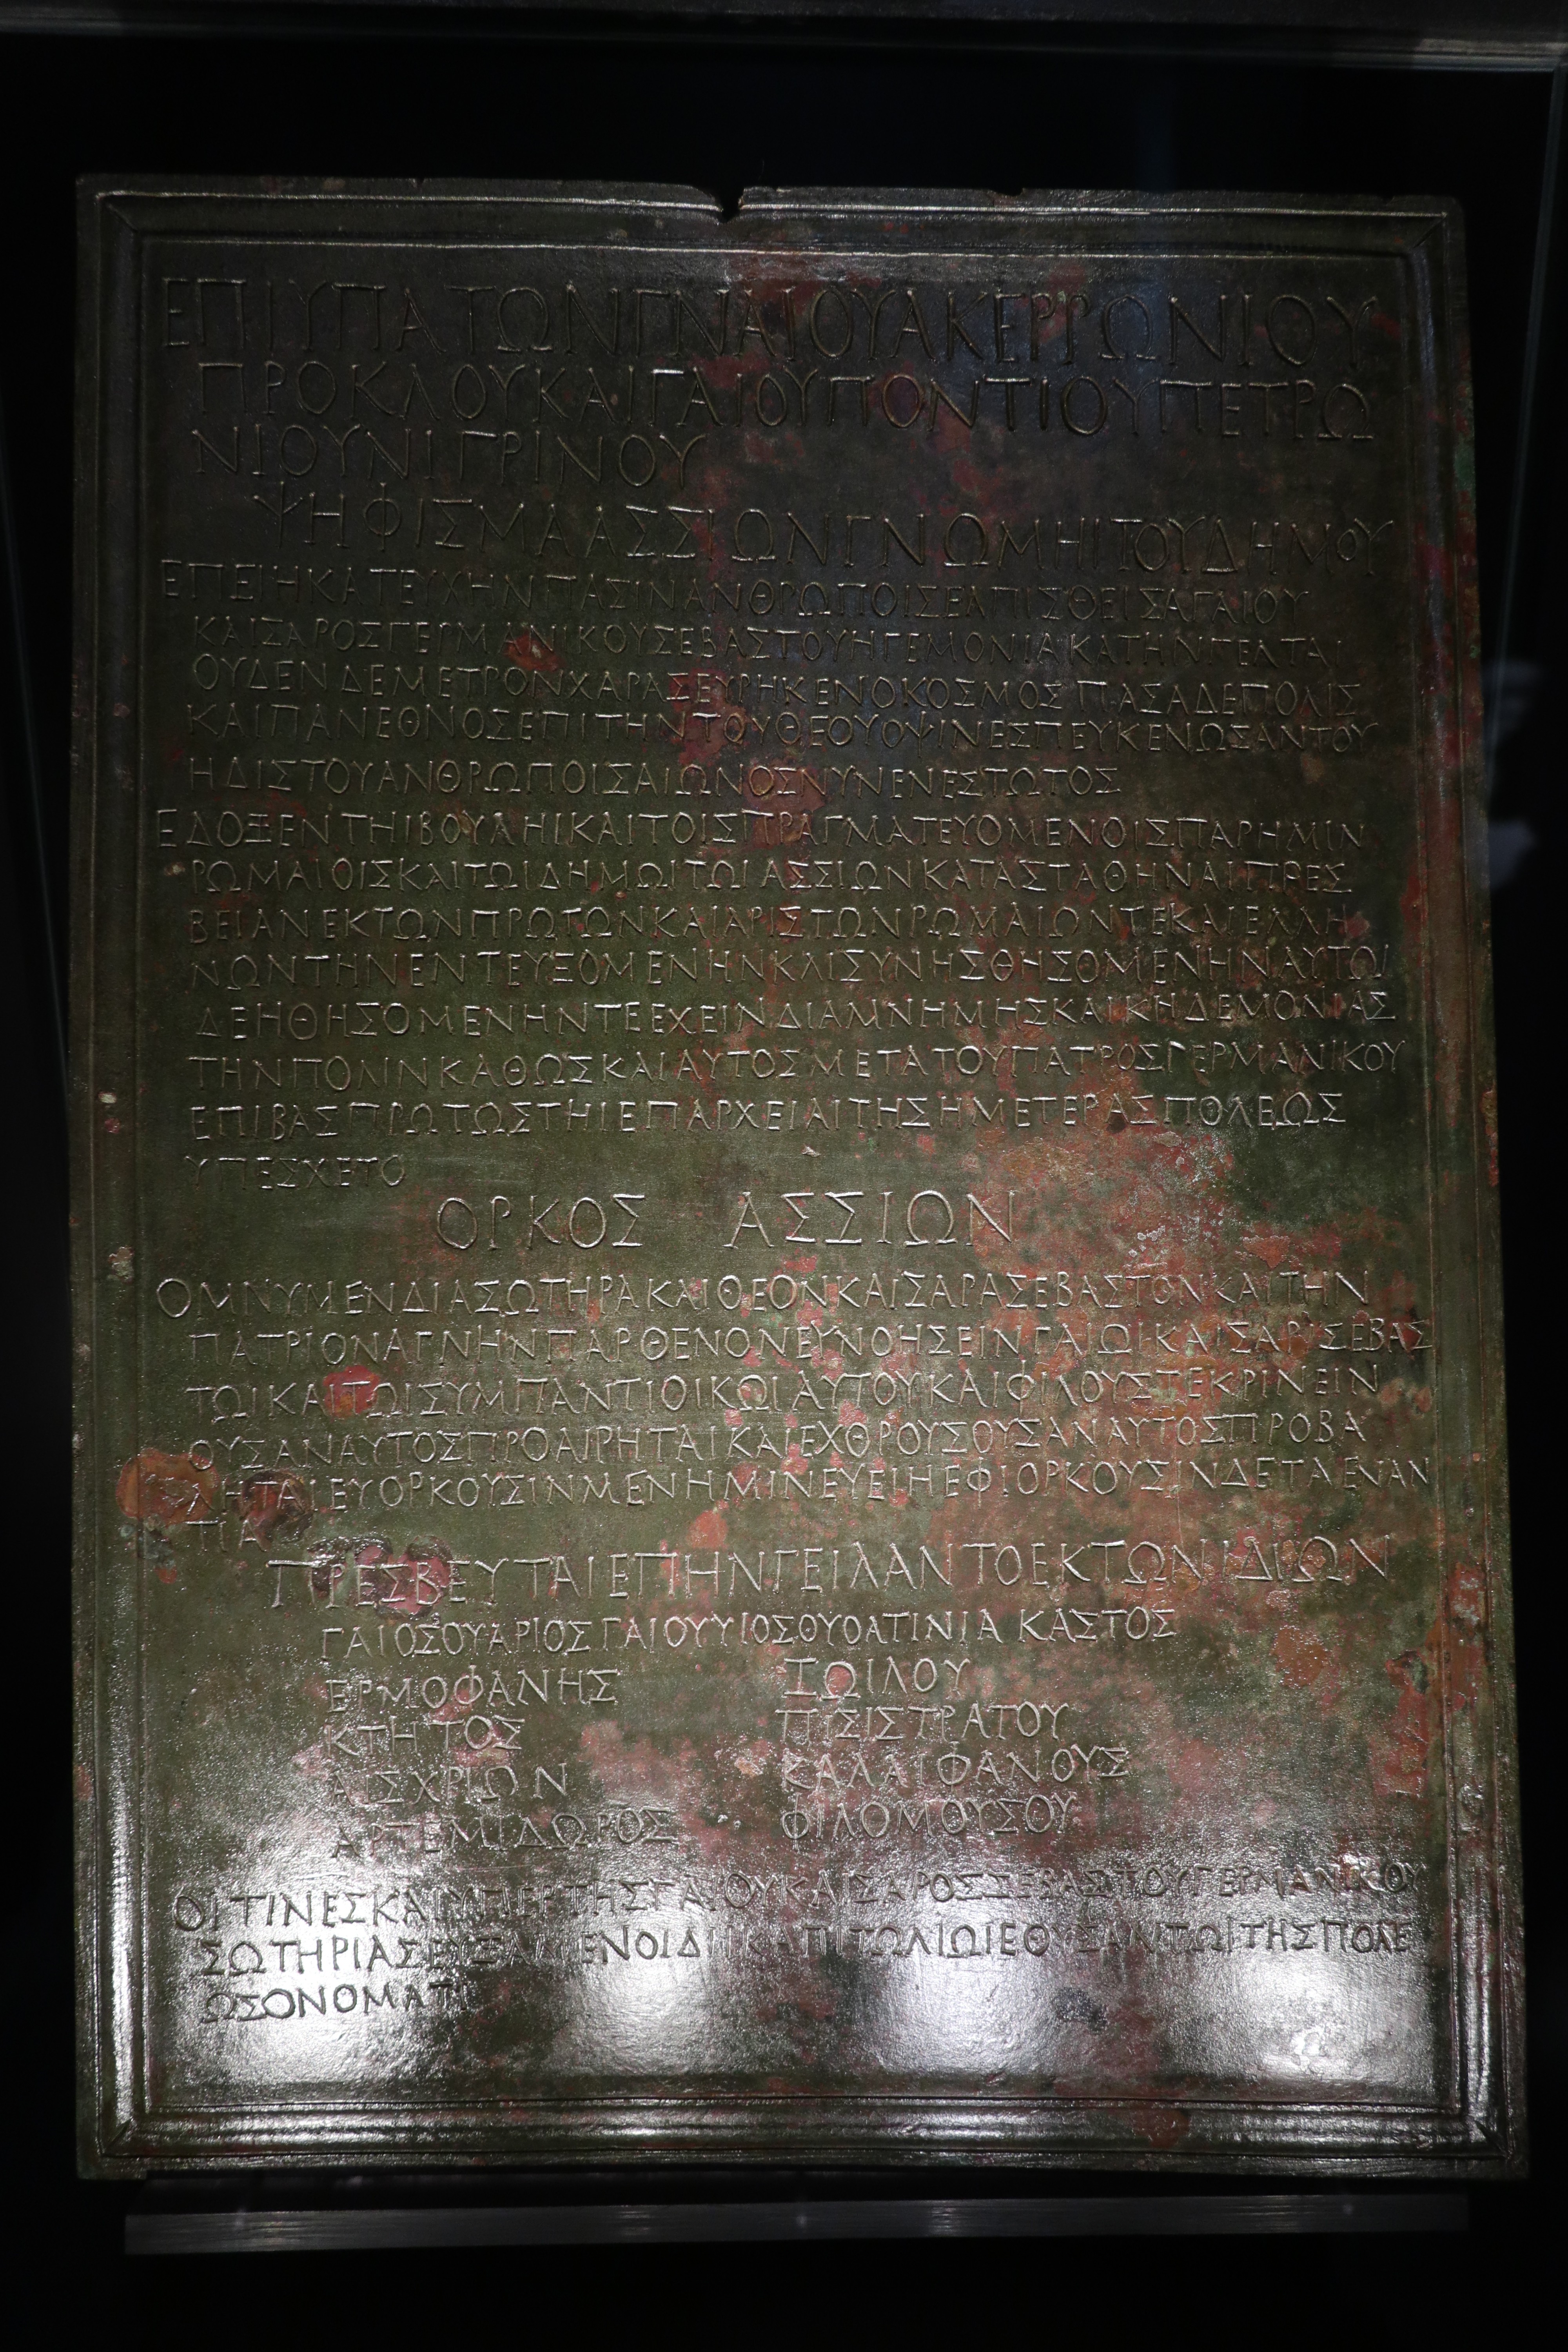 ΕΠΙΥΠΑΤΩΝΓΝΑΙΟΥΑΚΕΡΡΩΝΙΟΥ
ΠΡΟΚΛΟΥΚΑΙΓΑΙΟΥΠΟΝΤΙΟΥΠΕΤΡΩ
ΝΙΟΥΝΙΓΡΙΝΟΥ
ΨΗΦΙΣΜΑΑΣΣΙΩΝΓΝΩΜΗΙΤΟΥΔΗΜΟΥ
ΕΠΕΙΗΚΑΤΕΥΧΗΝΠΑΣΙΝΑΝΘΡΩΠΟΙΣΕΛΠΙΣΘΕΙΣΑΓΑΙΟΥ
ΚΑΙΣΑΡΟΣΓΕΡΜΑΝΙΚΟΥΣΕΒΑΣΤΟΥΗΓΕΜΟΝΙΑΚΑΤΗΝΓΕΛΤΑΙ
ΟΥΔΕΝΔΕΜΕΤΡΟΝΧΑΡΑΣΕΥΡΗΚΕΝΟΚΟΣΜΟΣΠΑΣΑΔΕΠΟΛΙΣ
ΚΑΙΠΑΝΕΘΝΟΣΕΠΙΤΗΝΤΟΥΘΕΟΥΟΨΙΝΕΣΠΕΥΚΕΝΩΣΑΝΤΟΥ
ΗΔΙΣΤΟΥΑΝΘΡΩΠΟΙΣΑΙΩΝΟΣΝΥΝΕΝΕΣΤΩΤΟΣ
ΕΔΟΞΕΝΤΗΙΒΟΥΛΗΙΚΑΙΤΟΙΣΠΡΑΓΜΑΤΕΥΟΜΕΝΟΙΣΠΑΡΗΜΙΝ
ΡΩΜΑΙΟΙΣΚΑΙΤΩΙΔΗΜΩΙΤΩΙΑΣΣΙΩΝΚΑΤΑΣΤΑΘΗΝΑΙΠΡΕΣ
ΒΕΙΑΝΕΚΤΩΝΠΡΩΤΩΝΚΑΙΑΡΙΣΤΩΝΡΩΜΑΙΩΝΤΕΚΑΙΕΛΛΗ
ΝΩΝΤΗΝΕΝΤΕΥΞΟΜΕΝΗΝΚΑΙΣΥΝΗΣΘΗΣΟΜΕΝΗΝΑΥΤΩΙ
ΔΕΗΘΗΣΟΜΕΝΗΝΤΕΕΧΕΙΝΔΙΑΜΝΗΜΗΣΚΑΙΚΗΔΕΜΟΝΙΑΣ
ΤΗΝΠΟΛΙΝΚΑΘΩΣΚΑΙΑΥΤΟΣΜΕΤΑΤΟΥΠΑΤΡΟΣΓΕΡΜΑΝΙΚΟΥ
ΕΠΙΒΑΣΠΡΩΤΩΣΤΗΙΕΠΑΡΧΕΙΑΙΤΗΣΗΜΕΤΕΡΑΣΠΟΛΕΩΣ
ΥΠΕΣΧΕΤΟ
ΟΡΚΟΣ ΑΣΣΙΩΝ
ΟΜΝΥΜΕΝΔΙΑΣΩΤΗΡΑΚΑΙΘΕΟΝΚΑΙΣΑΡΑΣΕΒΑΣΤΟΝΚΑΙΤΗΝ
ΠΑΤΡΙΟΝΑΓΝΗΝΠΑΡΘΕΝΟΝΕΥΝΟΗΣΕΙΝΓΑΙΩΙΚΑΙΣΑΡΙΣΕΒΑΣ
ΤΩΙΚΑΙΤΩΙΣΥΜΠΑΝΤΙΟΙΚΩΙΑΥΤΟΥΚΑΙΦΙΛΟΥΣΤΕΚΡΙΝΕΙΝ
ΟΥΣΑΝΑΥΤΟΣΠΡΟΑΙΡΗΤΑΙΚΑΙΕΧΘΡΟΥΣΟΥΣΑΝΑΥΤΟΣΠΡΟΒΑ
ΛΗΤΑΙΕΥΟΡΚΟΥΣΙΝΜΕΝΗΜΙΝΕΥΕΙΗΕΦΙΟΡΚΟΥΣΙΝΔΕΤΑΕΝΑΝ
ΤΙΑ
ΠΡΕΣΒΕΥΤΑΙΕΠΗΝΓΕΙΛΑΝΤΟΕΚΤΩΝΙΔΙΩΝ
ΓΑΙΟΣΟΥΑΡΙΟΣΓΑΙΟΥΥΙΟΣΟΥΟΛΤΙΝΙΑΚΑΣΤΟΣ
ΕΡΜΟΦΑΝΗΣ ΖΩΙΛΟΥ
ΚΤΗΤΟΣ ΠΙΣΙΣΤΡΑΤΟΥ
ΑΙΣΧΡΙΩΝ ΚΑΛΛΙΦΑΝΟΥΣ
ΑΡΤΕΜΙΔΩΡΟΣ ΦΙΛΟΜΟΥΣΟΥ
ΟΙΤΙΝΕΣΚΑΙΥΠΕΡΤΗΣΓΑΙΟΥΚΑΙΣΑΡΟΣΣΕΒΑΣΤΟΥΓΕΡΜΑΝΙΚΟΥ
ΣΩΤΗΡΙΑΣΕΥΞΑΜΕΝΟΙΔΙΙΚΑΠΙΤΩΛΙΩΙΕΘΥΣΑΝΤΩΙΤΗΣΠΟΛΕ
ΩΣΟΝΟΜΑΤΙ